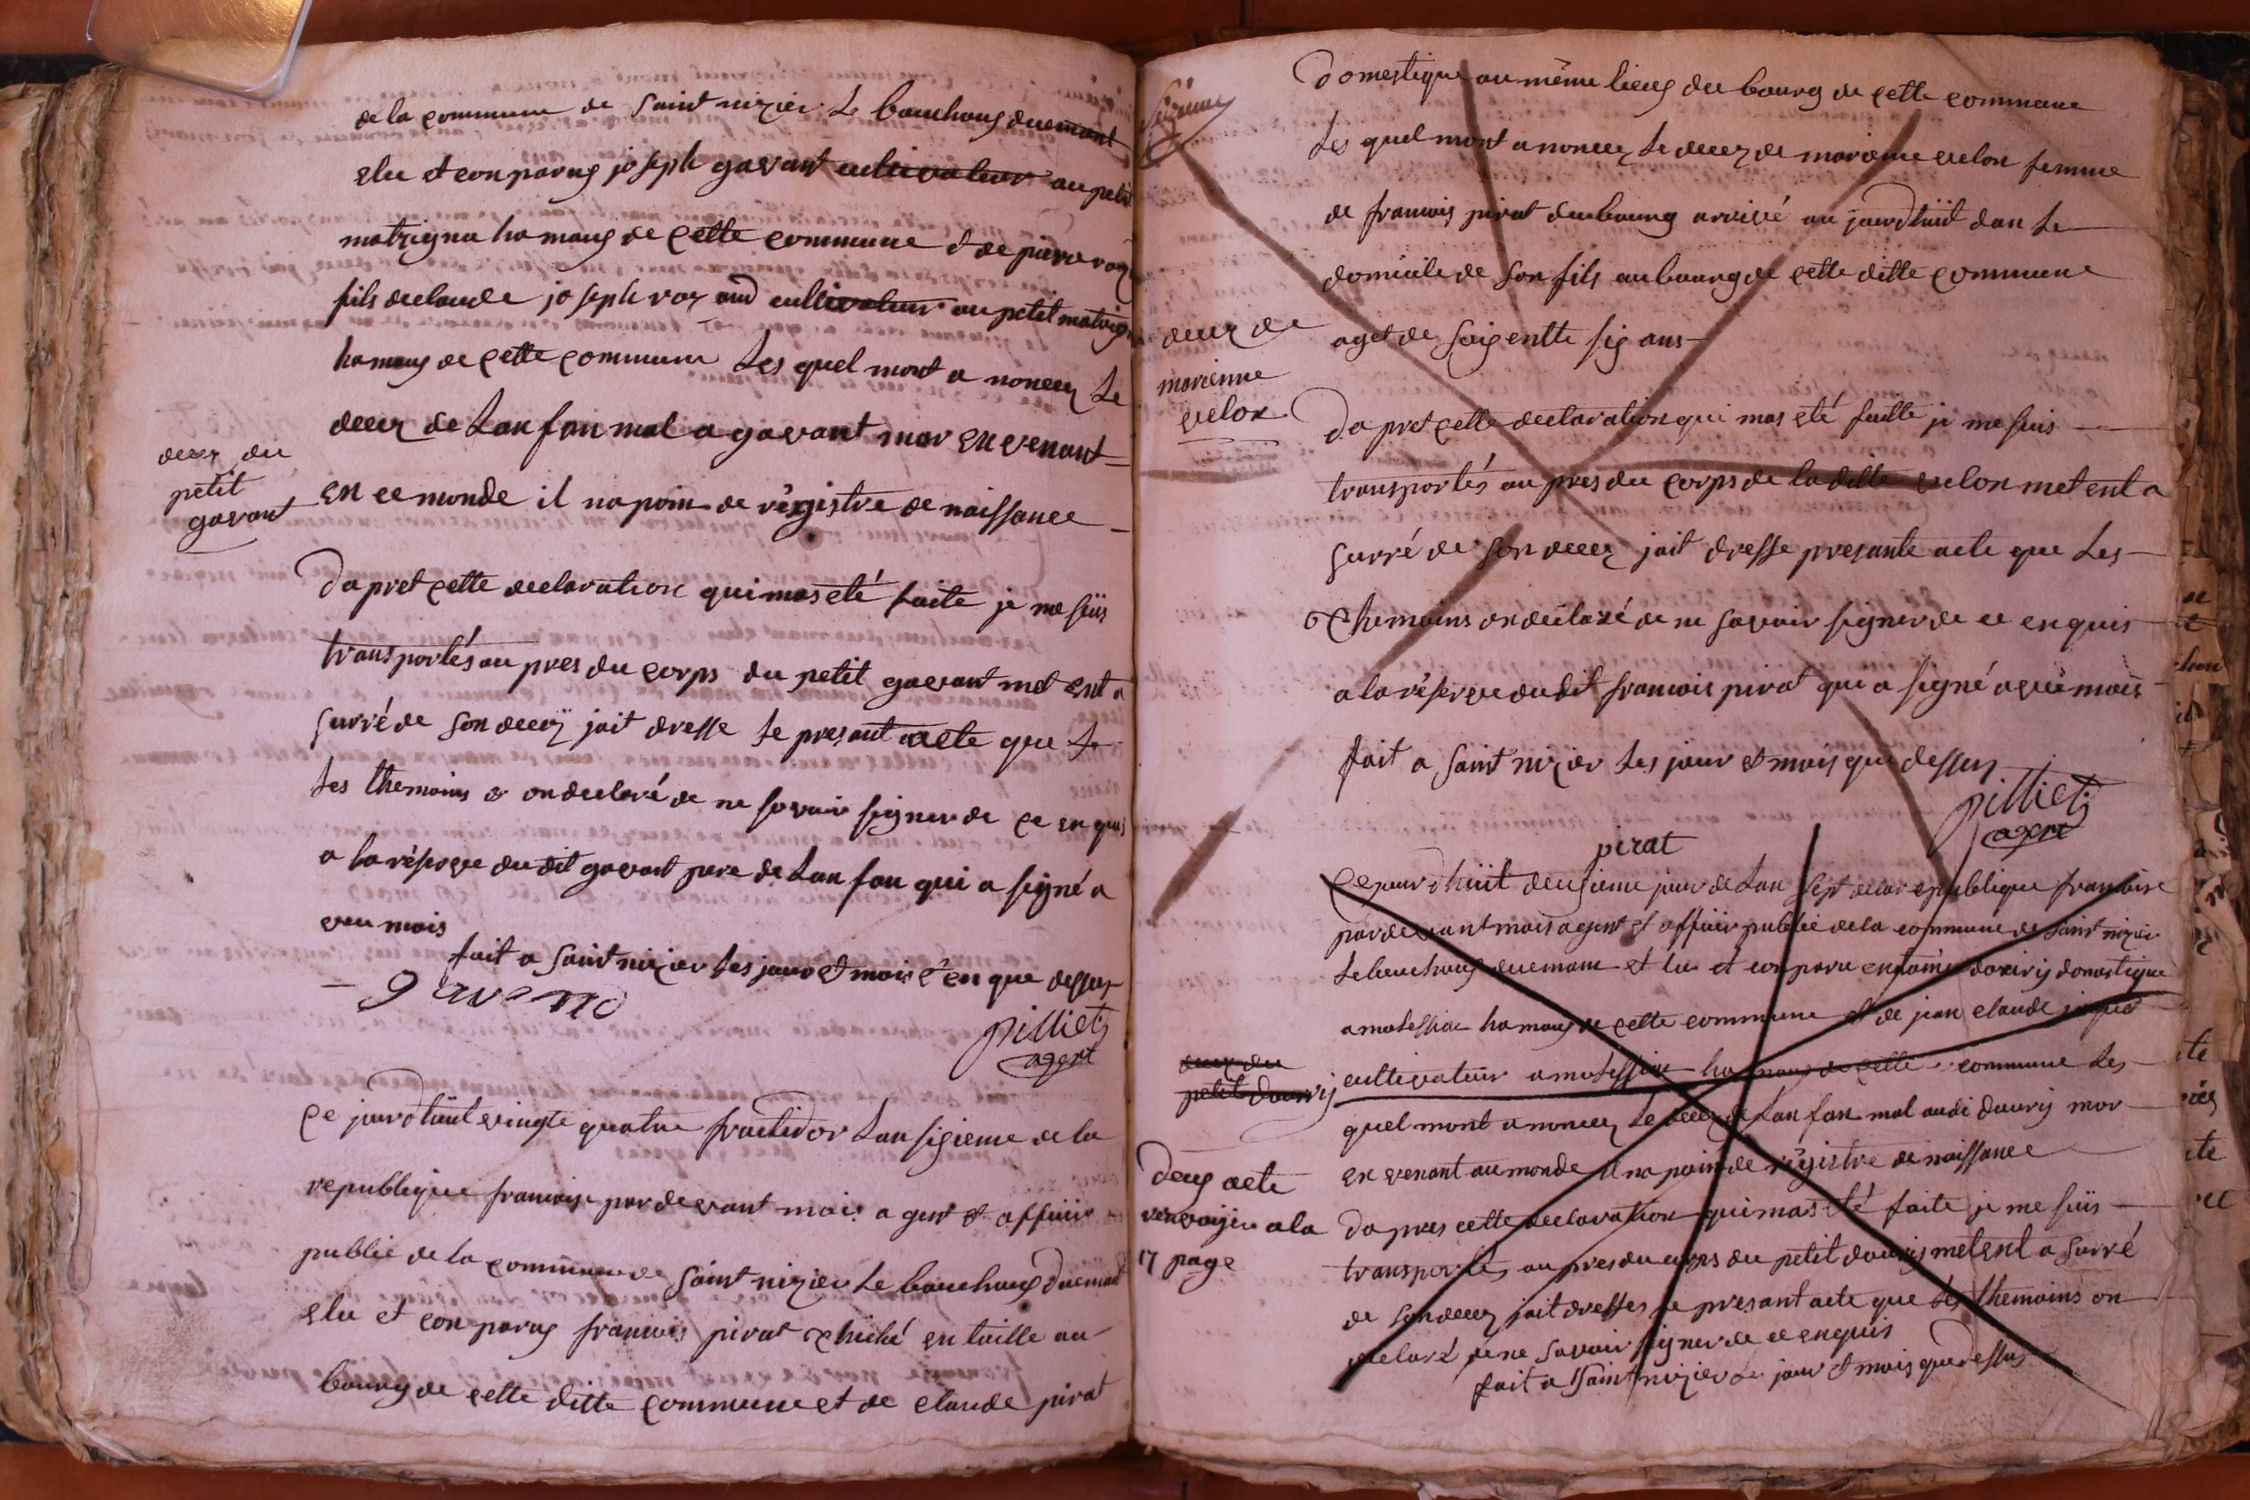 de la commune de saint nizier Le bouchoux duemant
elu et conparus joseph gavant cultivateur au petit
matrignu hamaux de cette commune & de piere roz
fils declaude joseph roz and cultivateur au petit matrign
hamaux de cette commune Les quel mont a noncez Le
decez de Lan fan mal a gavant mor en venant
decez du
petit
gavant
en ce monde il na poin de régistre de naissance
Da pret cette declaration qui mas eté faite je me suis
transportés au pres du corps du petit gavant met ent a
surré de son decez jait dresse Le presant acte que Le
Les themoins & on declaré de ne savoir signer de ce en quis
a la réserve du dit gavant pere de Lan fan qui a signé a
vec mois
fait a saint nizier Les jour et mois e en que dessus
gavand
pilliet
agent
Ce jourdhuit vingte quatre fructidor Lan sixieme de la
republique francoise par de vant mois agent & officié
public de la commune de saint nizier Le bouchoux duemant
elu et conparus francois pirat chiché en taille au
bourg de cette ditte commune et de claude pirat
domestique au même lieux du bourg de cette commune
Les quel mont a noncez Le decez de marienne velon femme
de francois pirat du bourg arrivé au jourdhuit dan Le
domicile de son fils au bourg de cette ditte commune
decez de
marienne
velon
aget de soixentte six ans
Da pret cette declaration qui mas eté faitte je me suis
transportés au pres du corps de la ditte velon met ent a
surré de son decez jait dresse presante acte que Les
themoins on déclaré de ne savoir signer de ce enquis
a la réserve dudit francois pirat qui a signé avec mois
fait a saint nizier Les jour et mois que dessus
pilliet
agent
pirat
Ce jourdhuit deusieme jour de Lan sept de la republique francoise
par devant mois agent et officier public de la commune de saint nizier
Le bouchoux duemant et lu et conparu domestique
a hamaux de cette commune & de jean claude
cultivateur a hamaux de cette commune Les
decez du
petit dauvis
quel mont a noncez Le decez de Lan fan mal dauvis mor
en venant au monde il na poin de régistre de naissance
Deux acte
renvoyer a la
17 page
da pres cette declaration qui mas eté faite je me suis
transportés au pres du corps du petit dauvis met ent a surré
de son decez jait dresses Le presant acte que Les themoins on
declaré de ne savoir signer de ce enquis
fait a saint nizier Le jour & mois que dessus